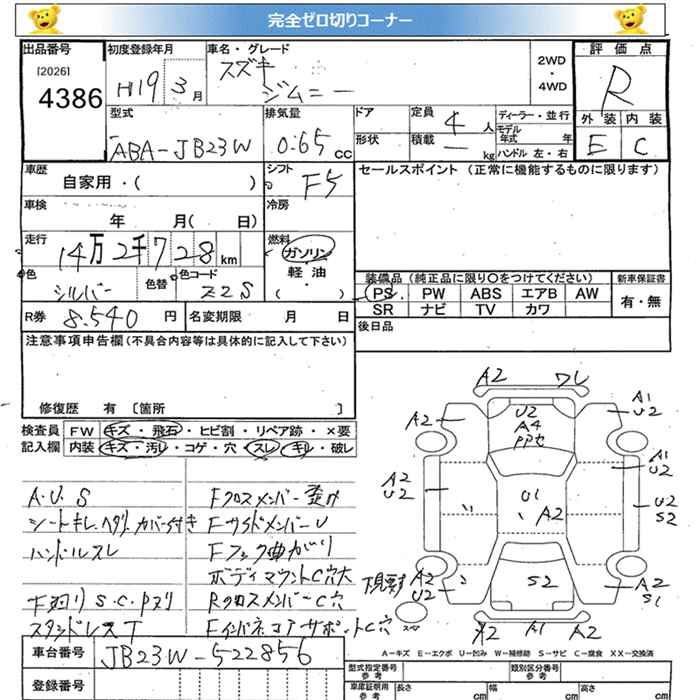 完全ゼロ切りコーナー
出品番号 初度登録年月 車名・グレード 評価点
[2026] 4386
H19 3月
スズキ
ジムニー
2WD
・
4WD
R
型式 排気量 ドア 定員 4人 ディーラー・並行 外装 内装
ABA-JB23W 0.65 cc 形状 積載 — kg モデル年式 年 E C
ハンドル 左・右
車歴 シフト セールスポイント (正常に機能するものに限ります)
自家用・( ) F5
車検 冷房
年 月( 日)
走行 燃料
14万2千728km ガソリン
軽油
( )
色 色替 色コード
シルバー Z2S
装備品 (純正品に限り○をつけてください) 新車保証書
PS PW ABS エアB AW 有・無
SR ナビ TV カワ
R券 8.540円 名変期限 月 日 後日品
注意事項申告欄(不具合内容等は具体的に記入して下さい)
修復歴 有 〔箇所 〕
検査員 FW キズ・飛石・ヒビ割・リペア跡・×要
記入欄 内装 キズ・汚レ・コゲ・穴・スレ・キレ・破レ
A.U.S
シートキレ、ヘタリ、カバー付き
ハンドルスレ
下廻り S.C.Pヌリ
Fクロスメンバー歪み
FサイドメンバーU
Fフック曲がり
ボディマウントC穴大
RクロスメンバーC穴
FインパネコアサポートC穴
A2 ワレ
A2 U2 A1
A4 U2
A2 A1
U2 U2
U1 U2
A2 S2
A2 S2 A2
U2 S1
A2 A1
スペア
A=キズ E=エクボ U=凹み W=補修跡 S=サビ C=腐食 XX=交換済
車台番号 JB23W-522856
登録番号
型式指定番号 参考 類別区分番号 参考
車庫証明用 参考 長さ cm 幅 cm 高さ cm